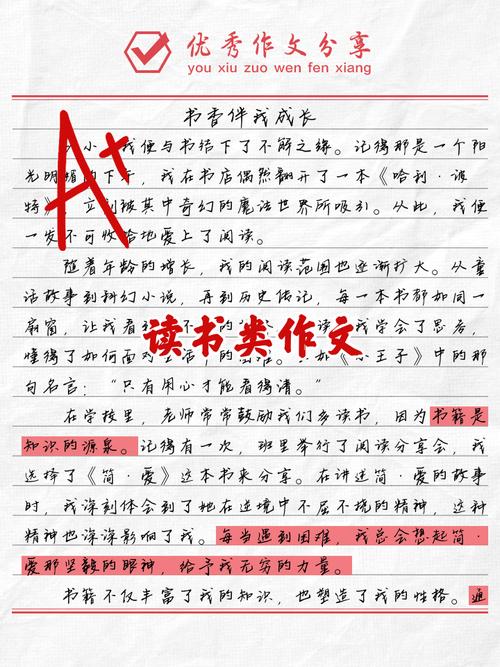 优秀作文分享
you xiu zuo wen fen xiang
书香伴我成长
小 我便与书结下了不解之缘。记得那是一个阳
光明媚的下午，我在书店偶然翻开了一本《哈利·波
特》，立刻被其中奇幻的魔法世界所吸引。从此，我便
一发不可收拾地爱上了阅读。
A+
随着年龄的增长，我的阅读范围也逐渐扩大。从童
话故事到科幻小说，再到历史传记，每一本书都如同一
扇窗，让我看 不 的 读 我学会了思考，
读书类作文
懂得了如何面对生活 的 《小王子》中的那
句名言：“只有用心才能看得清。”
在学校里，老师常常鼓励我们多读书，因为书籍是
知识的源泉。记得有一次，班里举行了阅读分享会，我
选择了《简·爱》这本书来分享。在讲述简·爱的故事
时，我深刻体会到了她在逆境中不屈不挠的精神，这种
精神也深深影响了我。每当遇到困难，我总会想起简·
爱那坚毅的眼神，给予我无穷的力量。
书籍不仅丰富了我的知识，也塑造了我的性格。通